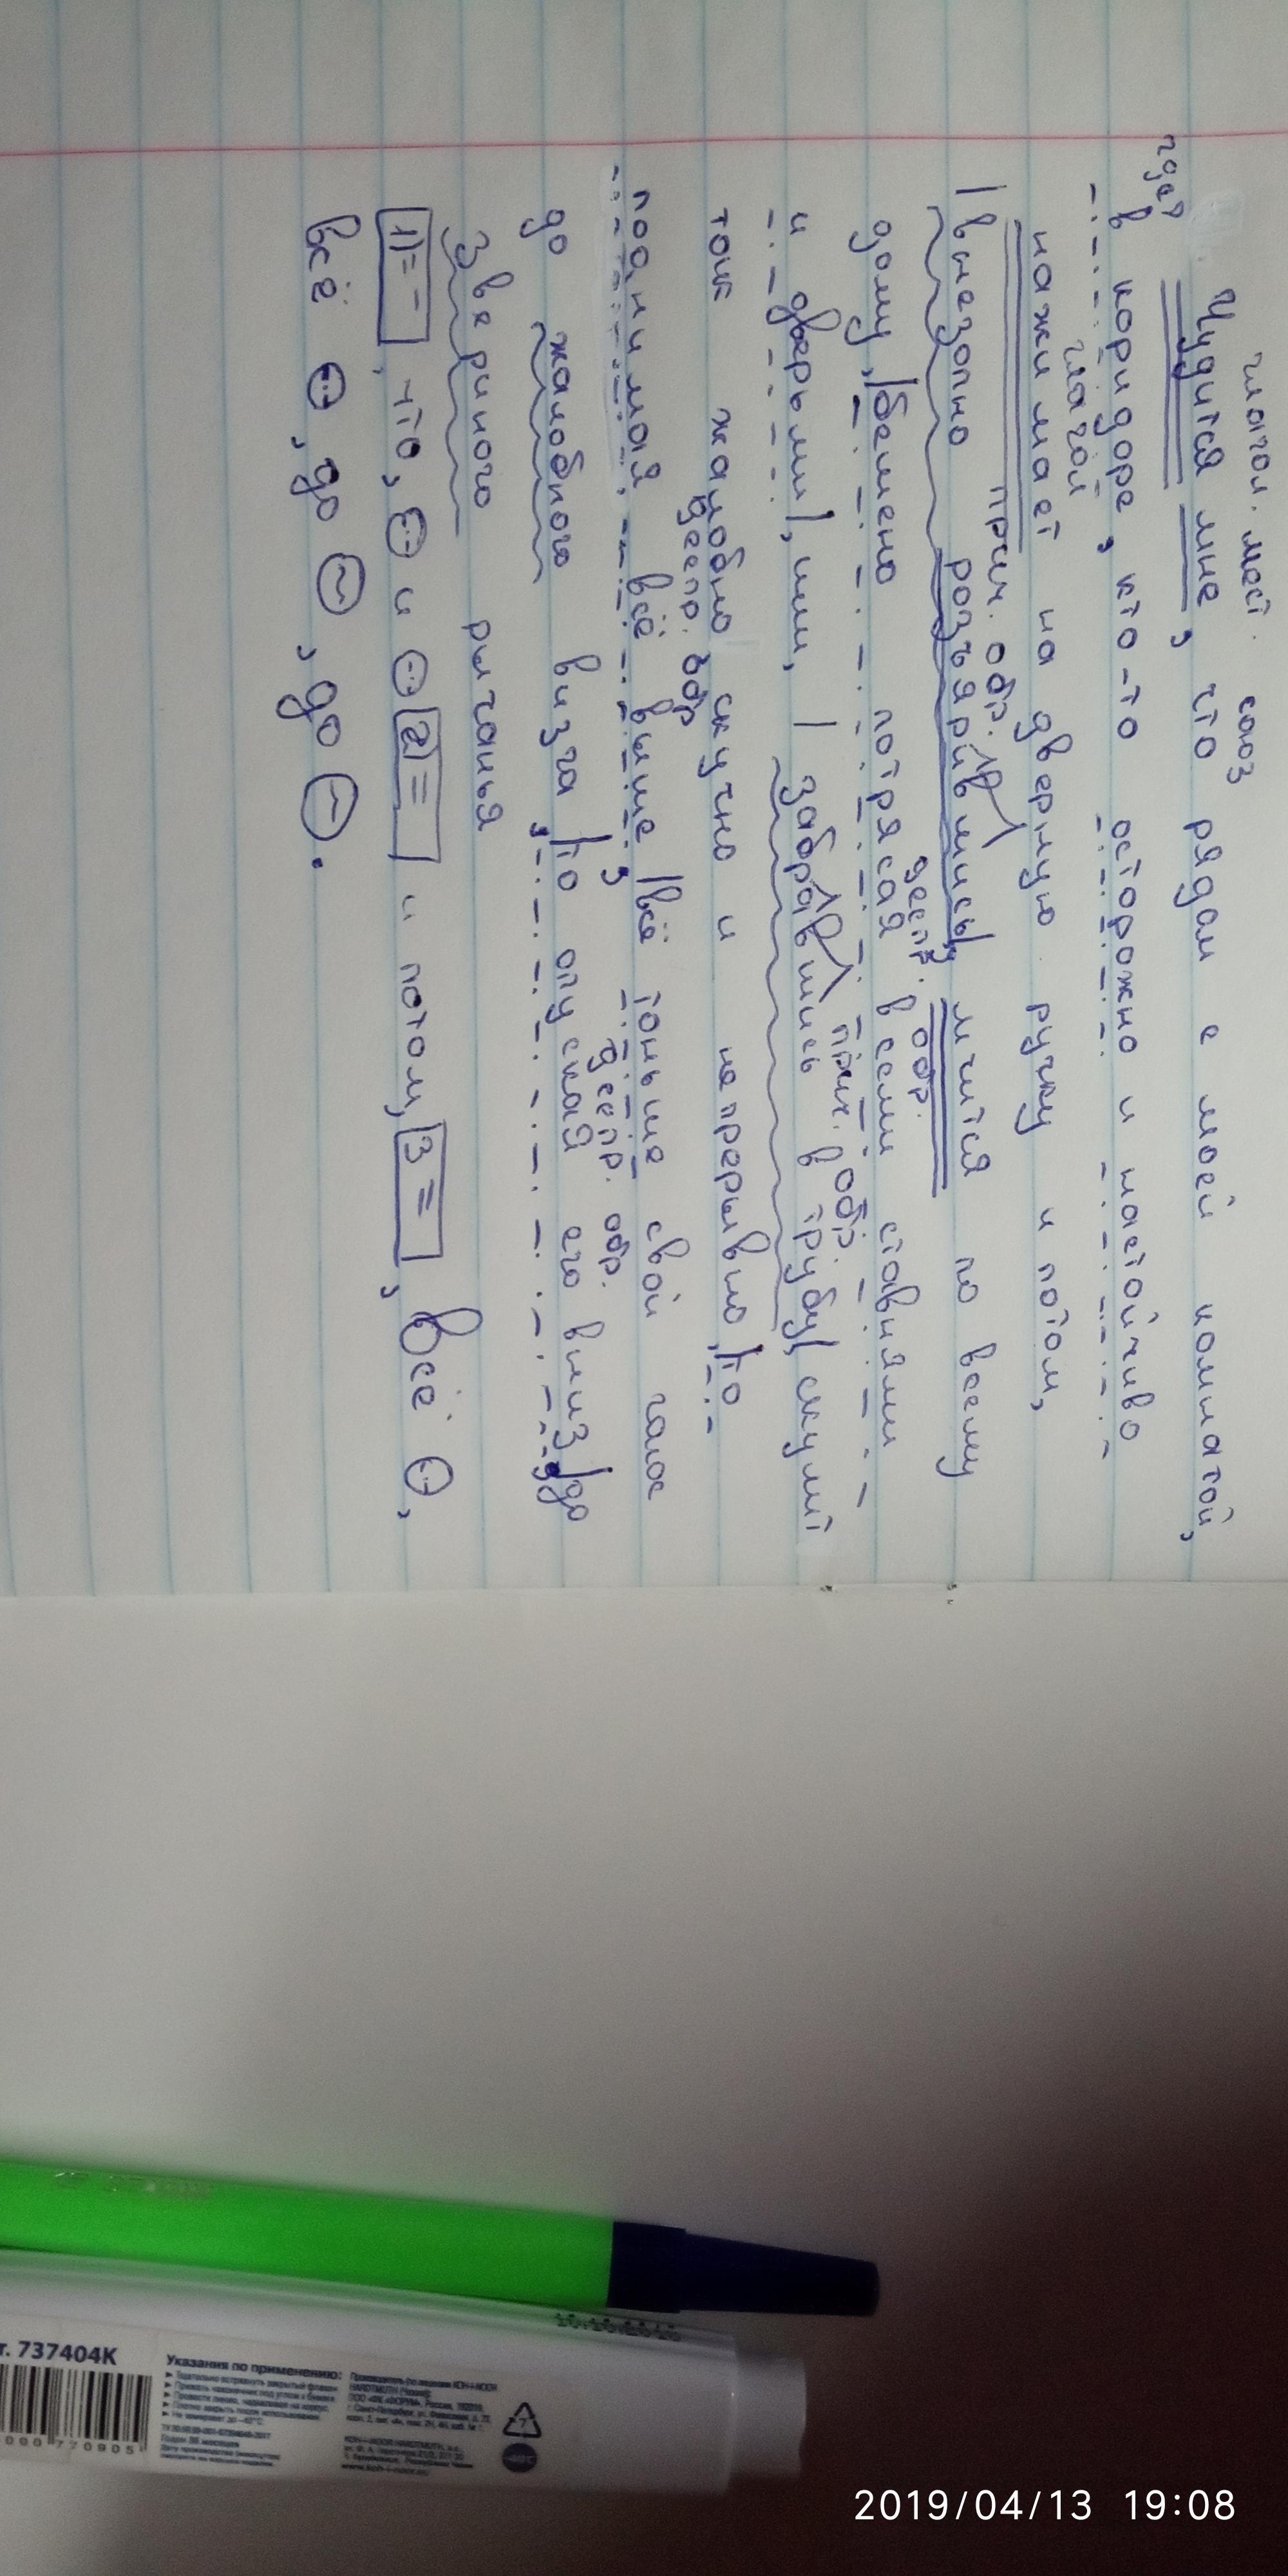 глагол. мест. союз
Чудится мне, что рядом с моей комнатой,
где?
в коридоре, кто-то осторожно и настойчиво
глагол
нажимает на дверную ручку и потом,
прич. обр.
внезапно разъярившись, мчится по всему
деепр. обр.
дому, бешено потрясая всеми ставнями
и дверьми, или, забравшись в трубу, скулит
прич. обр.
так жалобно, скучно и непрерывно, то
деепр. обр
поднимая всё выше, всё тоньше свой голос
деепр. обр.
до жалобного визга, то опуская его вниз, до
звериного рычанья
1)= - , что, и 2) = и потом, 3 = , всё ,
всё , до , до .
т. 737404К
Указания по применению:
2019/04/13 19:08